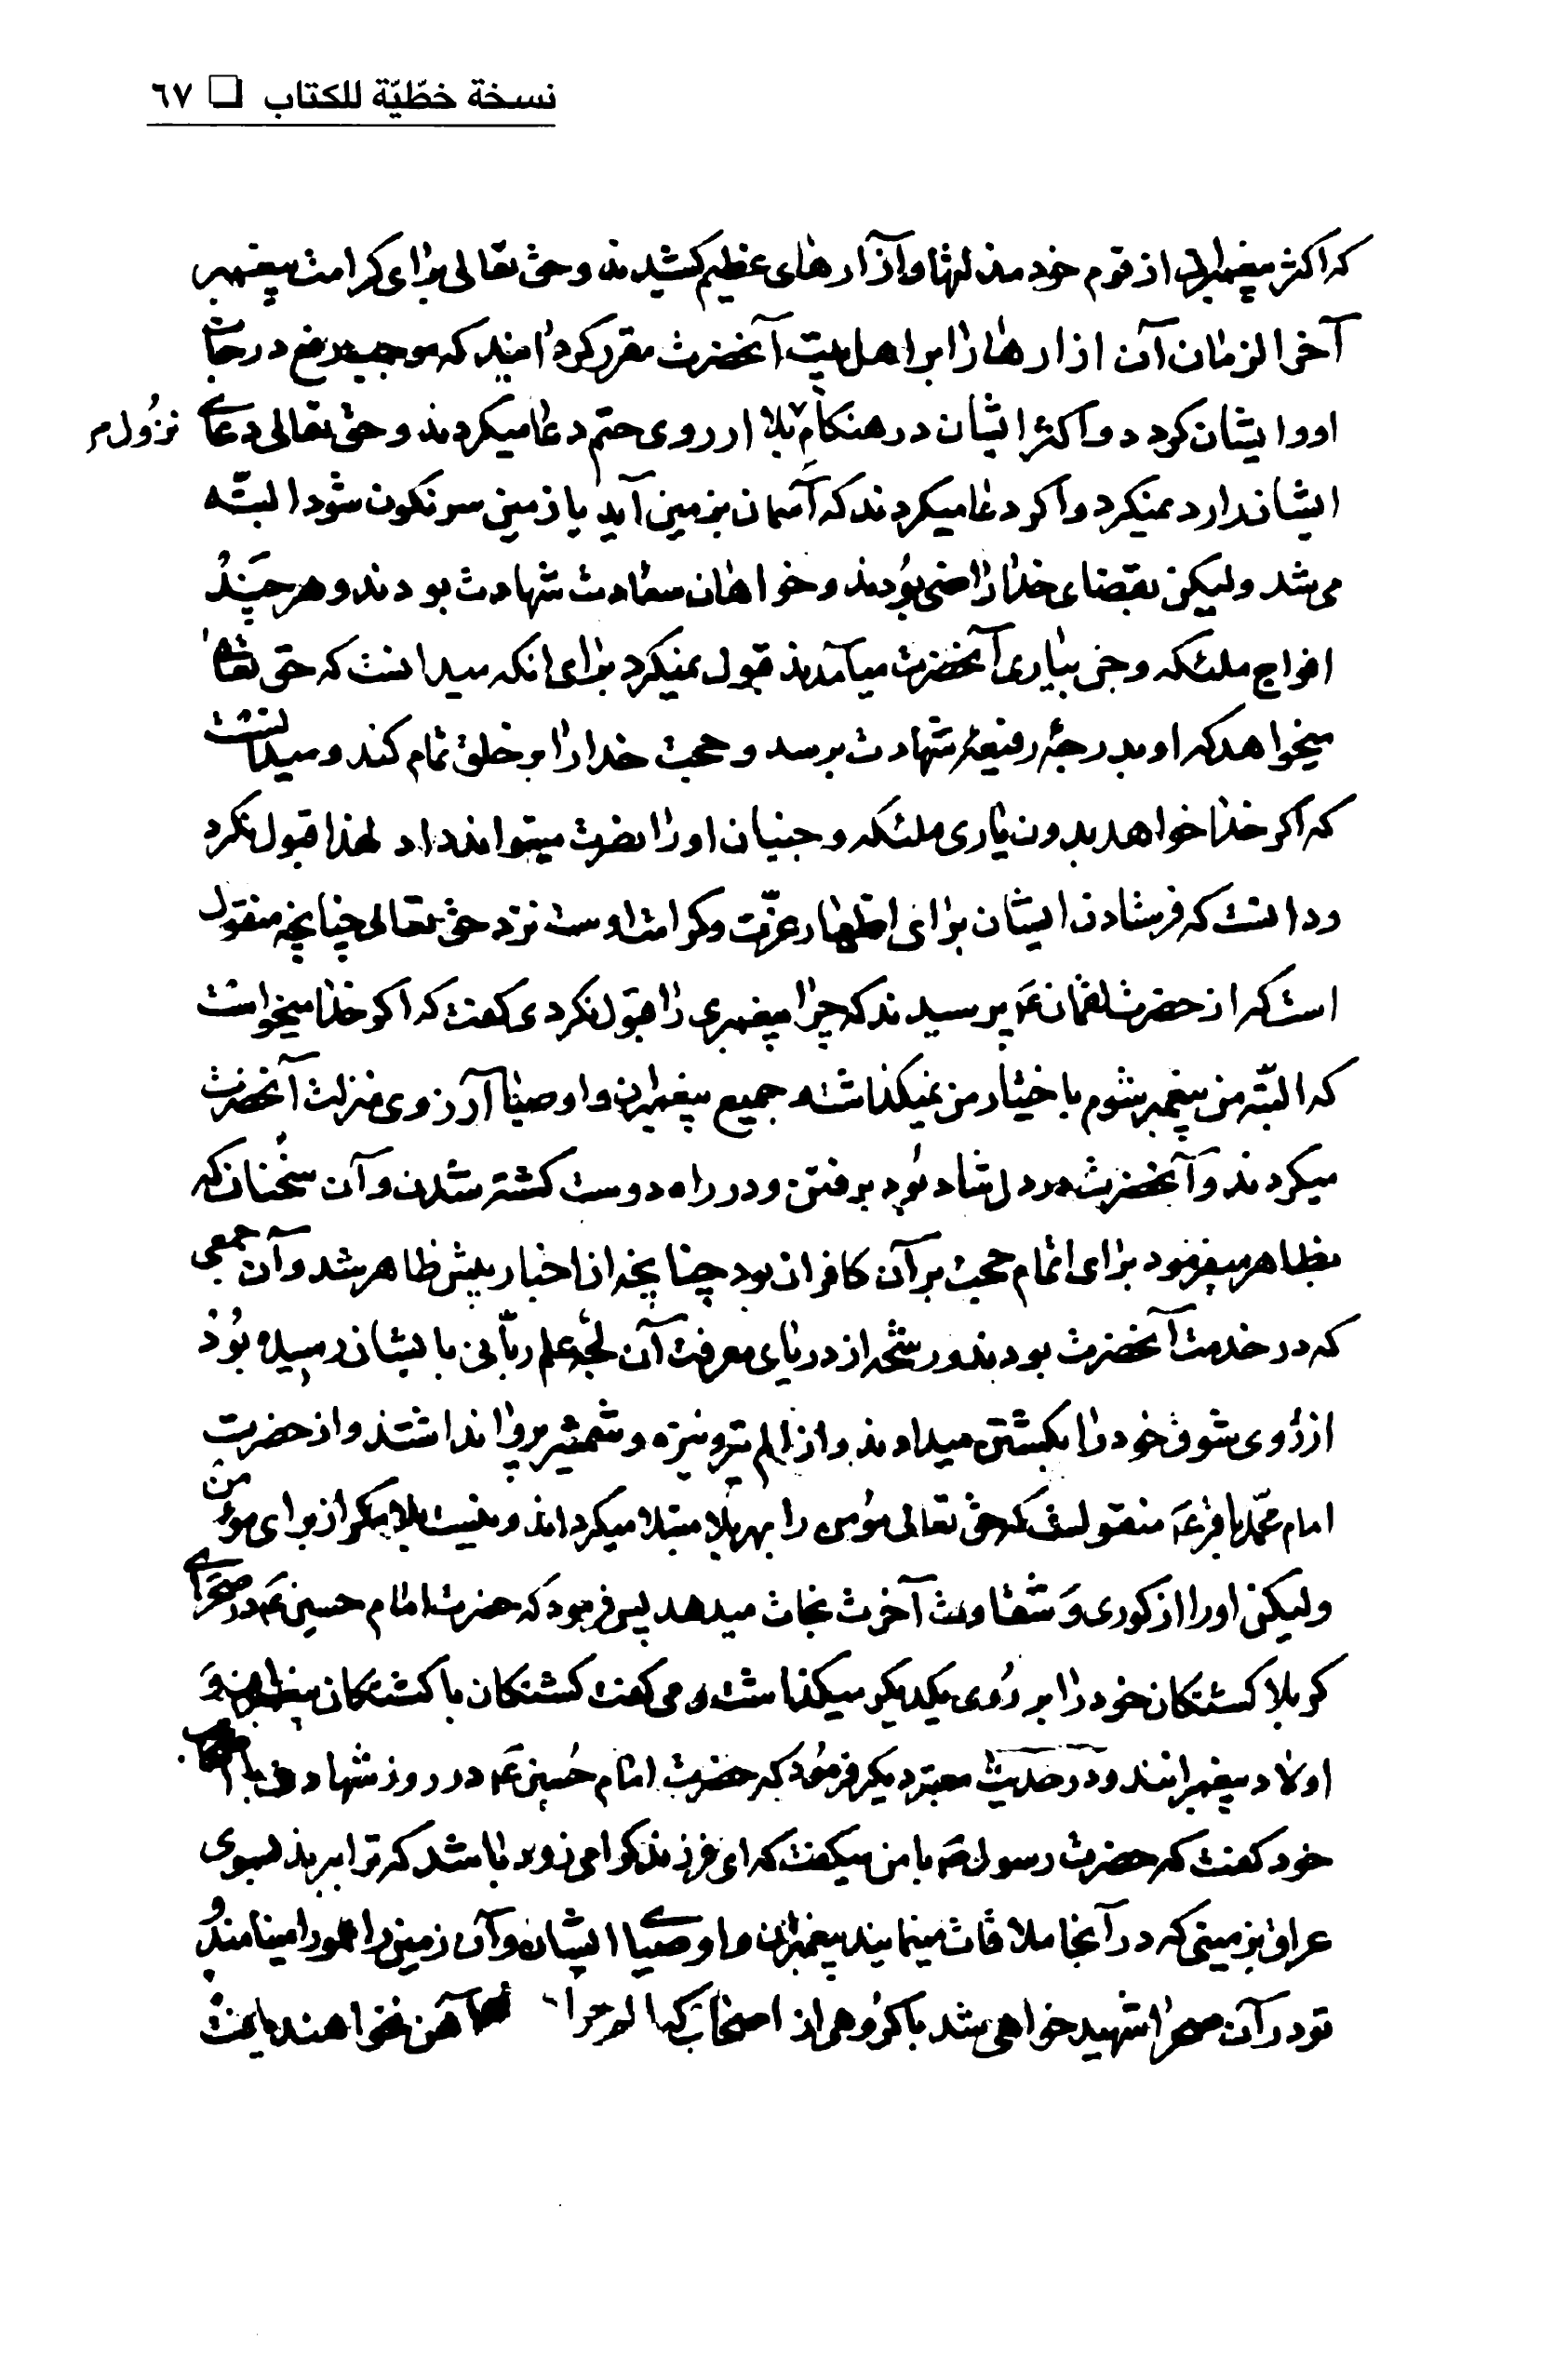 نسخة خطّيّة للكتاب □ ٦٧
که اکثر پیغمبران از قوم خود مذلتها و آزارهای عظیم کشیدند و حق تعالی برای کرامت پیغمبر
آخر الزمان آن ازارها را بر اهل بیت آنحضرت مقرر کردانید که موجب رفع درجات
او و ایشان کردد و اکثر ایشان در هنکام بلا از روی حتم دعا میکردند و حق تعالی دعای
نزول
ایشان را رد نمیکرد و اکر دعا میکردند که آسمان بزمین آید یا زمین سرنکون شود البتّه
می شد ولیکن بقضای خدا راضی بودند و خواهان سعادت شهادت بودند و هر چند
افواج ملئکه و جن بیاری آنحضرت میآمدند قبول نمیکرد برای انکه میدانست که حق تعا
میخواهد که او بدرجهٔ رفیعهٔ شهادت برسد و حجت خدا را بر خلق تمام کند و میدانست
که اکر خدا خواهد بدون یاری ملئکه و جنیان او را نصرت میتواند داد لهذا قبول نکرد
ودانست که فرستادن ایشان برای اظهار عزّت و کرامت اوست نزد حق تعالی چنانچه منقول
است که از حضرت لقمان ع پرسیدند که چرا پیغمبری را قبول نکردی کفت که اکر خدا میخواست
که البتّه من پیغمبر شوم باختیار من نمیکذاشت و جمیع پیغمبران و اوصیا آرزوی منزلت آنحضرت
میکردند و آنحضرت دل شاد بود برفتن و در راه دوست کشته شدن و آن سخنان که
بظاهر میفرمود برای اتمام حجت بر آن کافران بود چنانچه از اخبار پیش ظاهر شد و آن جمعی
که در خدمت آنحضرت بودند و رشحه از دریای معرفت آن لجهٔ علم ربّانی بایشان رسیده بود
از روی شوق خود را بکشتن میدادند و از الم تیر و نیزه و شمشیر پروا نداشتند و از حضرت
امام محمّد باقر ع منقولست که حق تعالی مؤمن را بهر بلا مبتلا میکرداند و نیست بلا مکر از برای مؤمن
ولیکن او را از کوری و شقاوت آخرت نجات میدهد پس فرمود که حضرت امام حسین ع در صحرای
کربلا کشتکان خود را بر روی یکدیکر میکذاشت و می کفت کشتکان ما کشتکان پیغمبران و
اولاد پیغمبرانند و در حدیث معتبر دیکر فرمود که حضرت امام حسین ع در روز شهادت با اصحاب
خود کفت که حضرت رسول ص با من میکفت که ای فرزند کرامی زود باشد که ترا ببرند بسوی
عراق بزمینی که در آنجا ملاقات مینمایند پیغمبران و اوصیای ایشان و آن زمین را عمورا مینامند و
تو در آن صحرا شهید خواهی شد با کروهی از اصحاب که الم حرا آهن نخواهند یافت